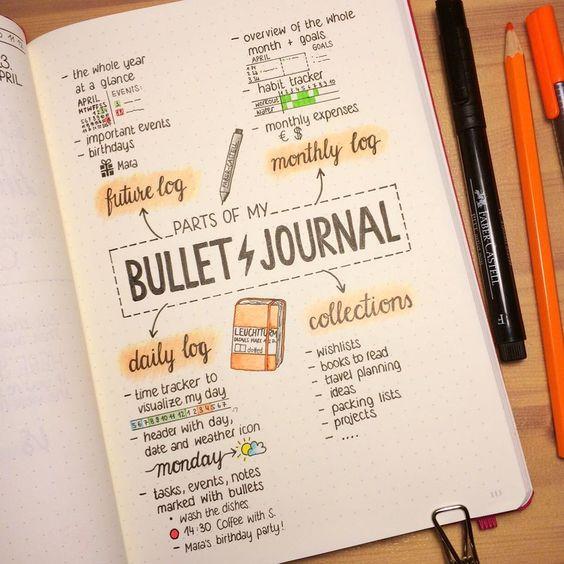 3.
APRIL
- the whole year
at a glance
APRIL
EVENTS:
MTWTFSS
- important events
- birthdays
Mara
future log
- overview of the whole
month + goals
APRIL
GOALS
- habit tracker
workout
water
- monthly expenses
€ $
monthly log
FABER CASTELL
PARTS OF MY
BULLET JOURNAL
daily log
- time tracker to
visualize my day
5 6 7 8 9 10 11 12 1 2 3 4 5 6 7
- header with day,
date and weather icon
monday
- tasks, events, notes
marked with bullets
• wash the dishes
14:30 Coffee with S.
- Mara's birthday party!
LEUCHTTURM
dotted
collections
- wishlists
- books to read
- travel planning
- ideas
- packing lists
- projects
- ....
113
FABER-CASTELL
F